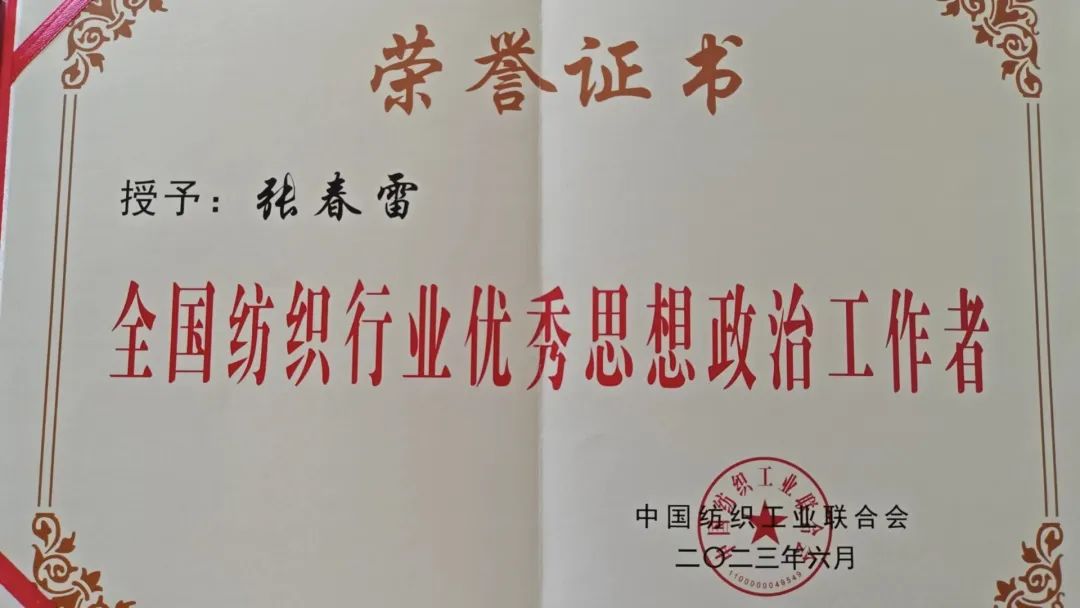 荣誉证书
授予：张春雷
全国纺织行业优秀思想政治工作者
中国纺织工业联合会
二〇二三年六月
中国纺织工业联合会
1100000049549